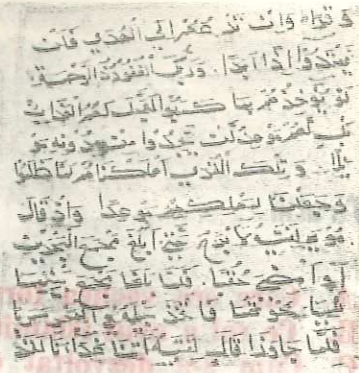 وقرا وان تدعهم الى الهدى فلن
يهتدوا اذا ابدا وربك الغفور ذو الرحمة
لو يؤاخذهم بما كسبوا لعجل لهم العذاب
بل لهم موعد لن يجدوا من دونه مو
ئلا وتلك القرى اهلكناهم لما ظلموا
وجعلنا لمهلكهم موعدا واذ قال
موسى لفتيه لا ابرح حتى ابلغ مجمع البحرين
او امضي حقبا فلما بلغا مجمع بينهما
نسيا حوتهما فاتخذ سبيله في البحر سربا
فلما جاوزا قال لفتيه اتنا غدانا لقد